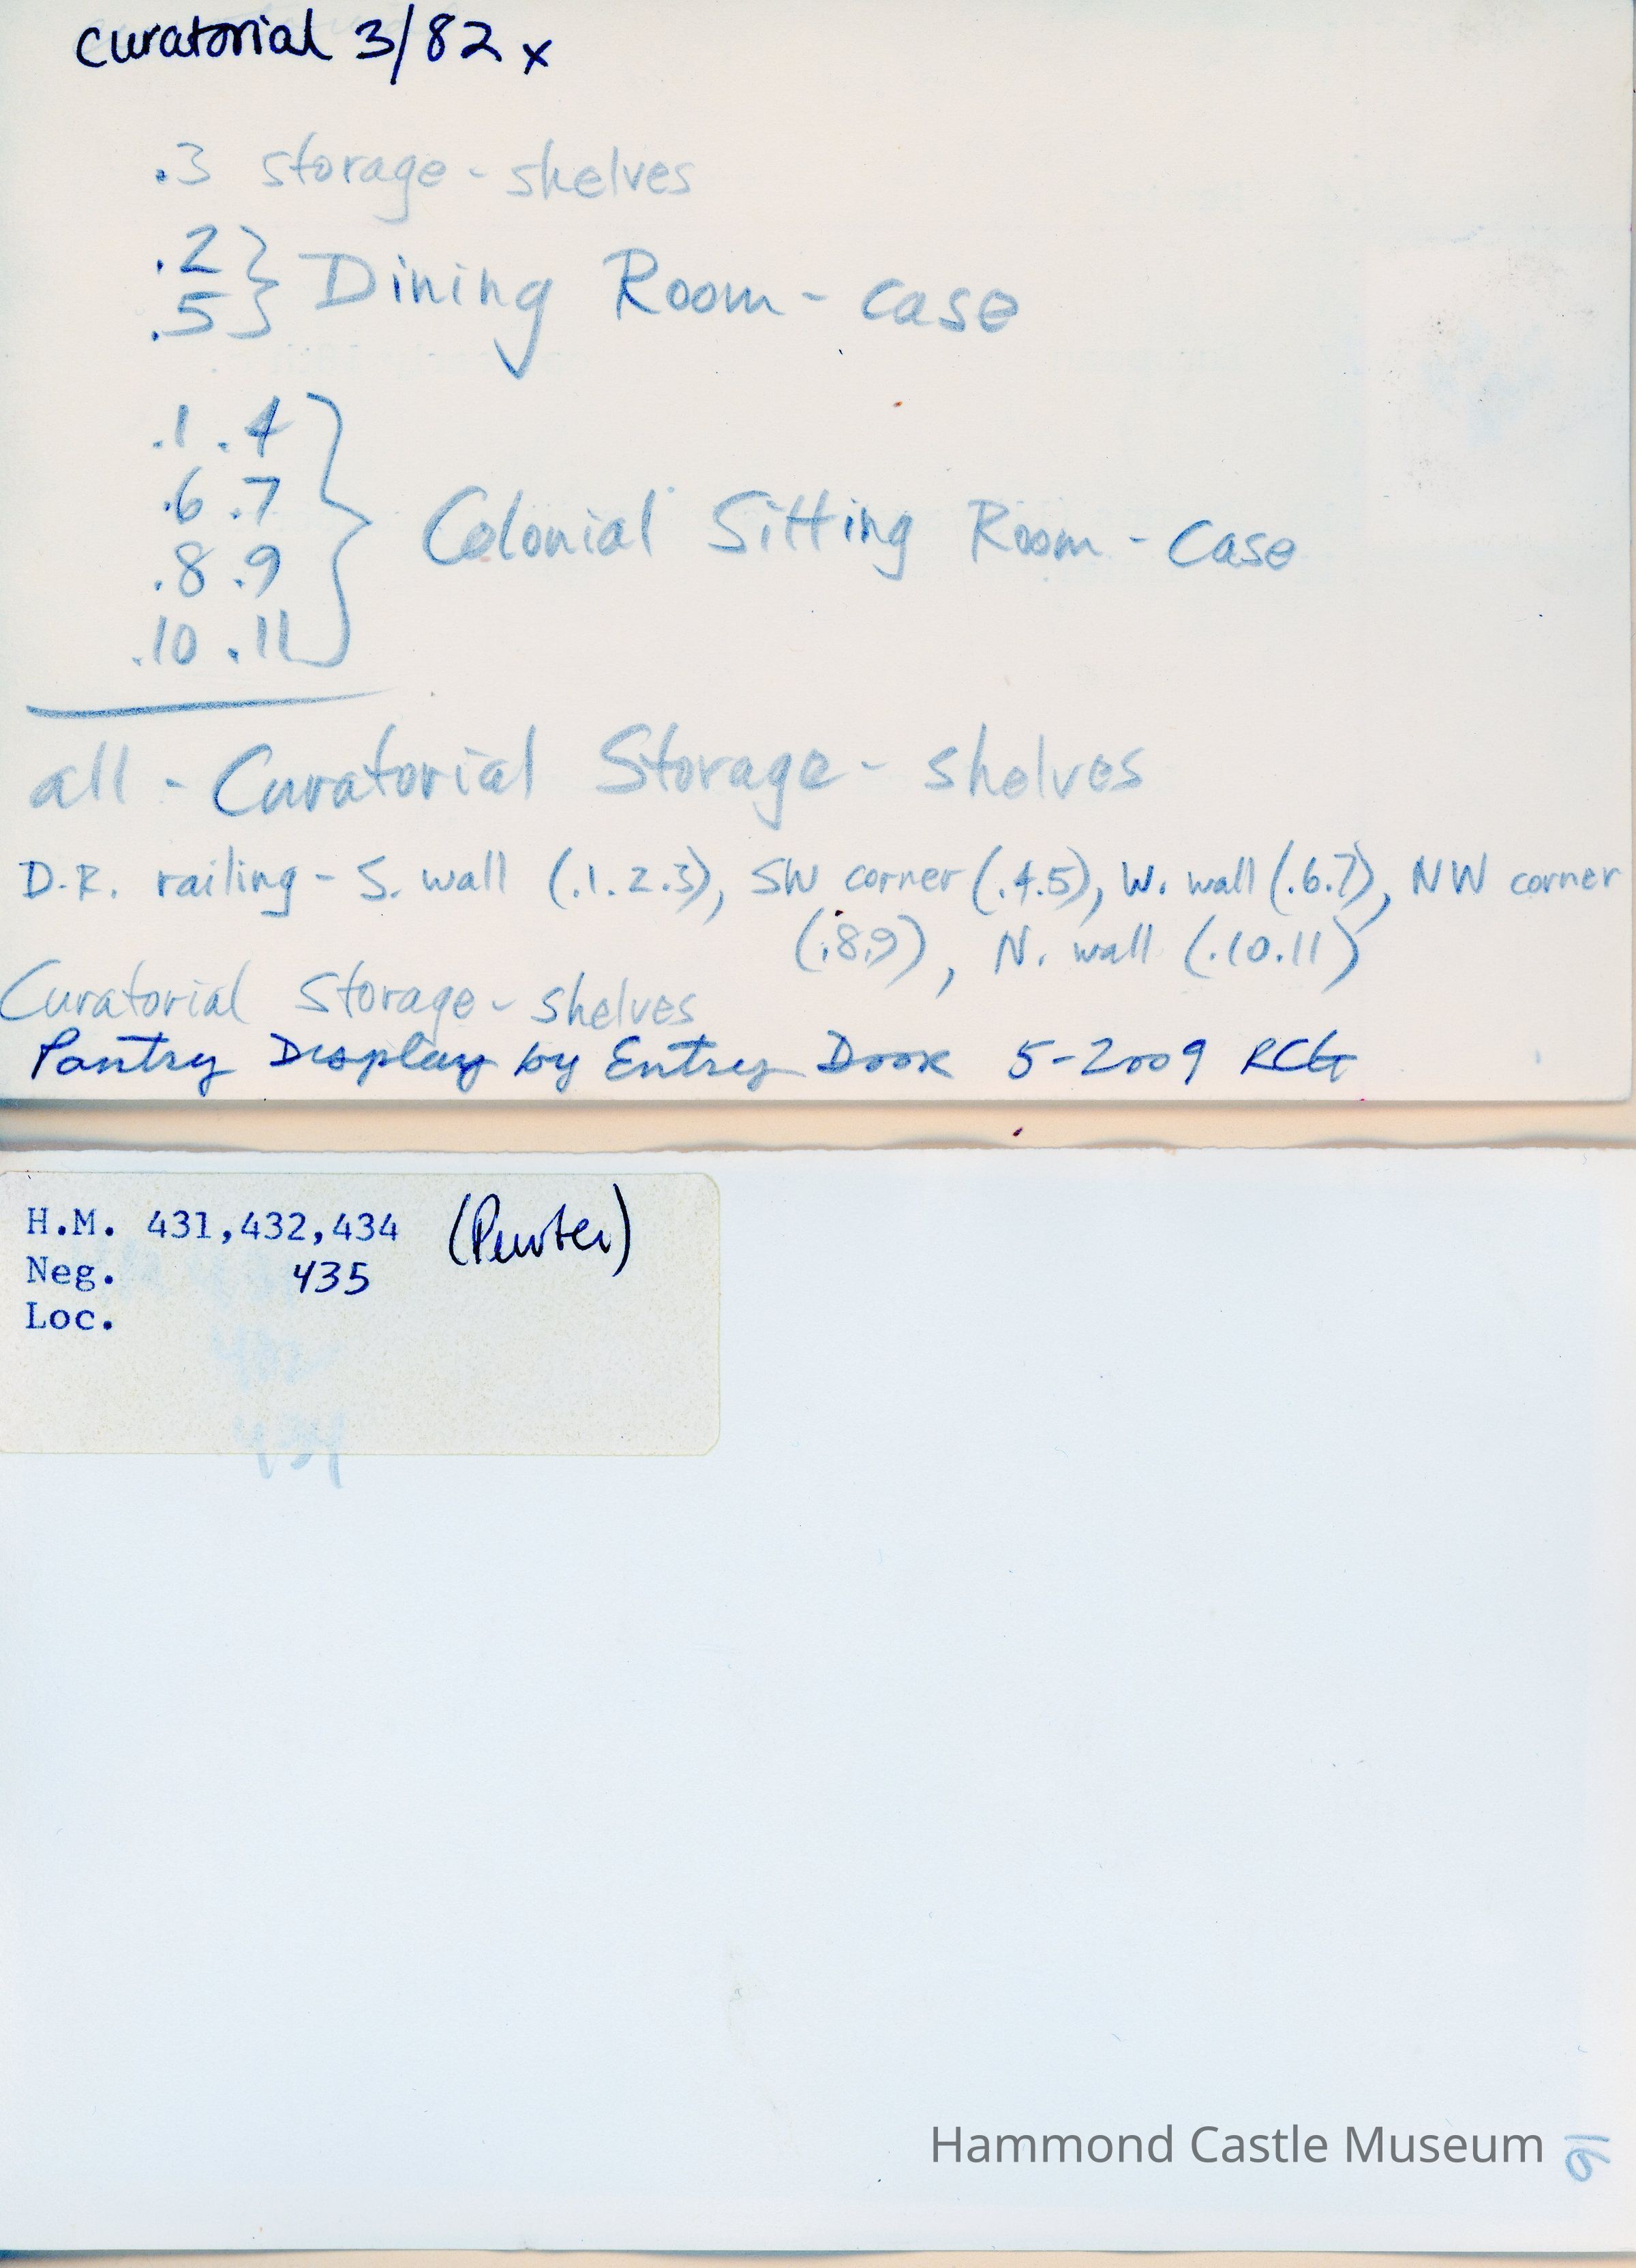 curatorial 3/82 x
.3 storage - shelves
.2
.5 } Dining Room - case
.1 .4
.6 .7
.8 .9
.10 .11 } Colonial Sitting Room - Case
all - Curatorial Storage - shelves
D.R. railing - S. wall (.1.2.3), SW corner (.4.5), W. wall (.6.7), NW corner
(.8.9), N. wall (.10.11)
Curatorial Storage - shelves
Pantry Display by Entry Door 5-2009 RCG
H.M. 431,432,434 (Pewter)
Neg. 435
Loc.
Hammond Castle Museum
16